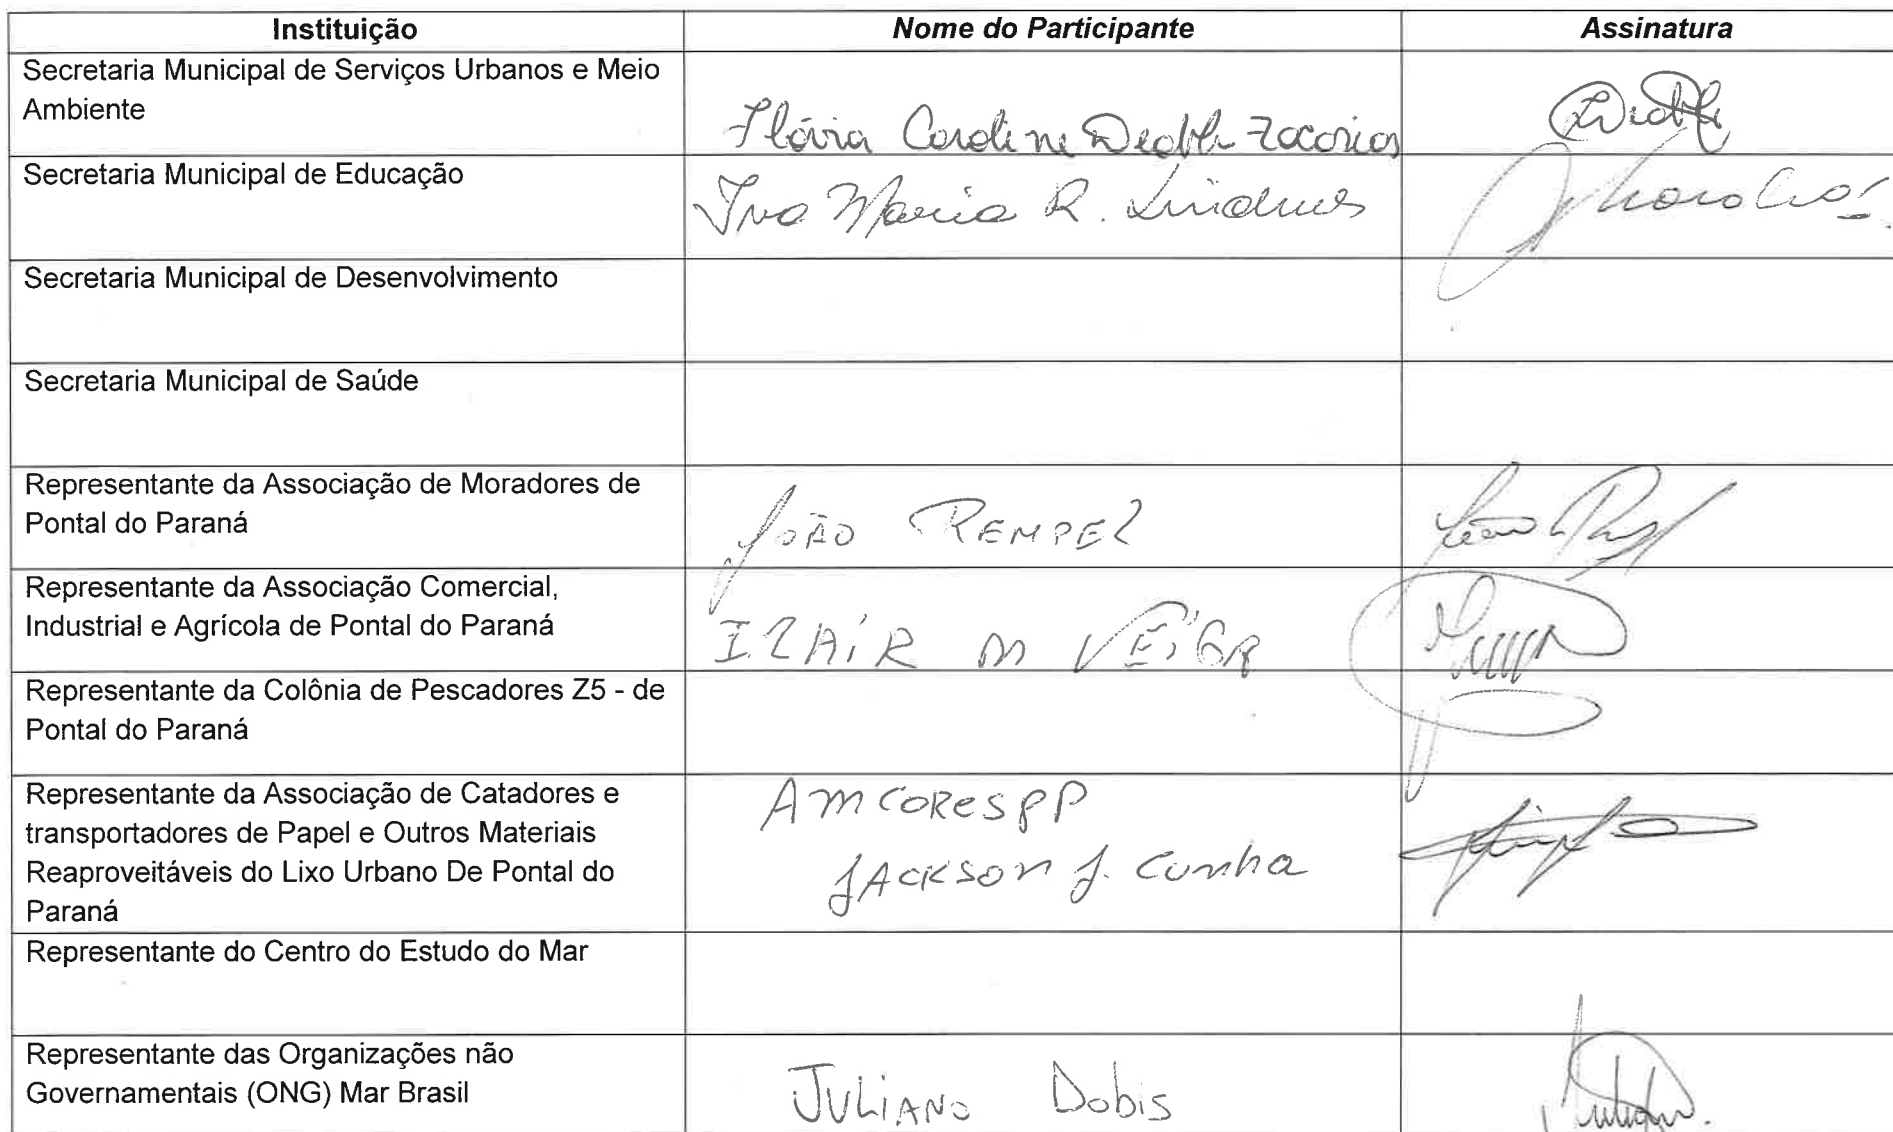 Instituição Nome do Participante Assinatura
Secretaria Municipal de Serviços Urbanos e Meio
Ambiente
Flávia Caroline Deoble Zacarias
Secretaria Municipal de Educação
Iva Maria R.
Secretaria Municipal de Desenvolvimento
Secretaria Municipal de Saúde
Representante da Associação de Moradores de
Pontal do Paraná
JOÃO REMPEL
Representante da Associação Comercial,
Industrial e Agrícola de Pontal do Paraná
ILAIR M VEIGA
Representante da Colônia de Pescadores Z5 - de
Pontal do Paraná
Representante da Associação de Catadores e
transportadores de Papel e Outros Materiais
Reaproveitáveis do Lixo Urbano De Pontal do
Paraná
AmCORESPP
JACKSON J. Cunha
Representante do Centro do Estudo do Mar
Representante das Organizações não
Governamentais (ONG) Mar Brasil
JULIANO Dobis